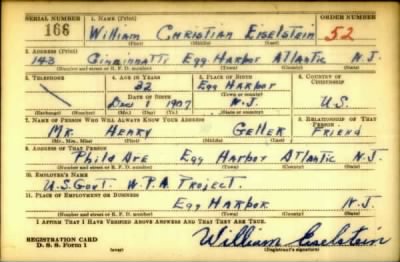 SERIAL NUMBER 1. NAME (Print) ORDER NUMBER
166 William Christian Eiselstein 52
(First) (Middle) (Last)
2. ADDRESS (Print)
143 Cincinnatti Egg Harbor Atlantic N.J.
(Number and street or R. F. D. number) (Town) (County) (State)
3. TELEPHONE 4. AGE IN YEARS 5. PLACE OF BIRTH 6. COUNTRY OF CITIZENSHIP
32 Egg Harbor
DATE OF BIRTH (Town or county)
Dec 1 1907 N.J. U.S.
(Exchange) (Number) (Mo.) (Day) (Yr.) (State or country)
7. NAME OF PERSON WHO WILL ALWAYS KNOW YOUR ADDRESS 8. RELATIONSHIP OF THAT PERSON
Mr. Henry Geller Friend
(Mr., Mrs., Miss) (First) (Middle) (Last)
9. ADDRESS OF THAT PERSON
Phila Ave Egg Harbor Atlantic N.J.
(Number and street or R. F. D. number) (Town) (County) (State)
10. EMPLOYER'S NAME
U.S. Govt. W.P.A. Project.
11. PLACE OF EMPLOYMENT OR BUSINESS
Egg Harbor N.J.
(Number and street or R. F. D. number) (Town) (County) (State)
I AFFIRM THAT I HAVE VERIFIED ABOVE ANSWERS AND THAT THEY ARE TRUE.
REGISTRATION CARD William Eiselstein
D. S. S. Form 1 (over) (Registrant's signature)